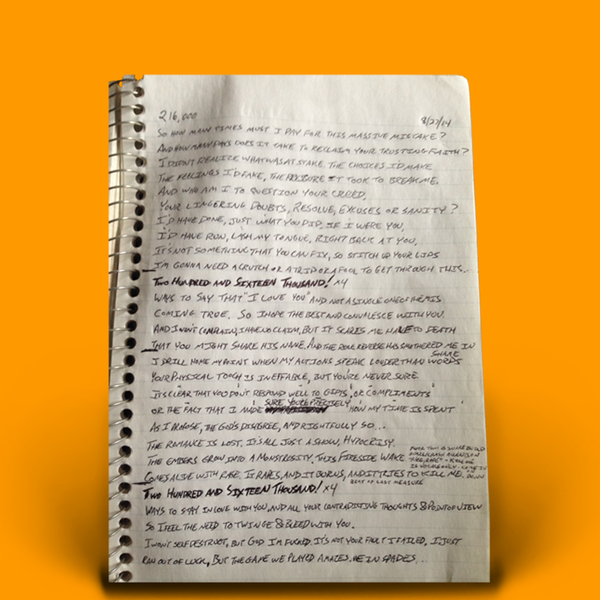 216,000 8/27/14
So how many times must I pay for this massive mistake?
And how many does it take to reclaim your trusting faith?
I didn't realize what was at stake. The choices I'd make
The feelings I'd fake, the pressure it took to break me.
And who am I to question your creed,
Your lingering doubts, resolve, excuses or sanity?
I'd have done, just what you did, if I were you,
I'd have run, lash my tongue, right back at you,
It's not something that you can fix, so stitch up your lips
I'm gonna need a crutch or a trip or a fool to get through this...
Two Hundred and Sixteen Thousand! x4
Ways to say that "I love you" and not a single one of them is
coming true. So I hope the best and convalesce with you.
And I won't complain, I have no claim, but it scares me half to death
That you might share his name. And the role reverse has smothered me in
shame
I drill home my point when my actions speak louder than words
Your physical touch is ineffable, but you're never sure
It's clear that you don't respond well to "gifts", or "compliments"
or the fact that I made sure, you're precisely how my time is spent
As I propose, the God's disagree, and rightfully so...
The romance is lost, it's all just a show, hypocrisy.
The embers grow into a monstrosity, this fireside wake
Comes alive with rage. It rapes, and it burns, and it tries to kill me.
beat to last measure
Two Hundred and Sixteen Thousand! x4
Ways to stay in love with you and all your contradicting thoughts & point of view
So I feel the need to twinge & bleed with you.
I won't self destruct, but God I'm fucked. It's not your fault I failed, I just
ran out of luck, but the game we played amazes me in spades...